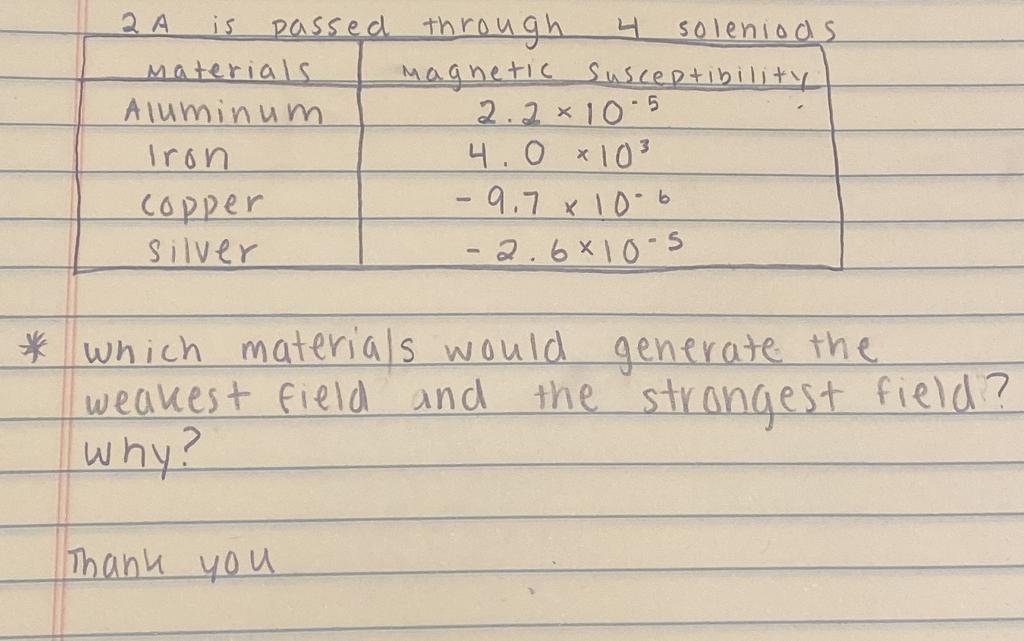 2 A is passed through 4 soleniods
Materials Magnetic Susceptibility
Aluminum 2.2 × 10⁻⁵
Iron 4.0 × 10³
copper - 9.7 × 10⁻⁶
Silver - 2.6 × 10⁻⁵
* which materials would generate the
weakest field and the strongest field?
why?
Thank you